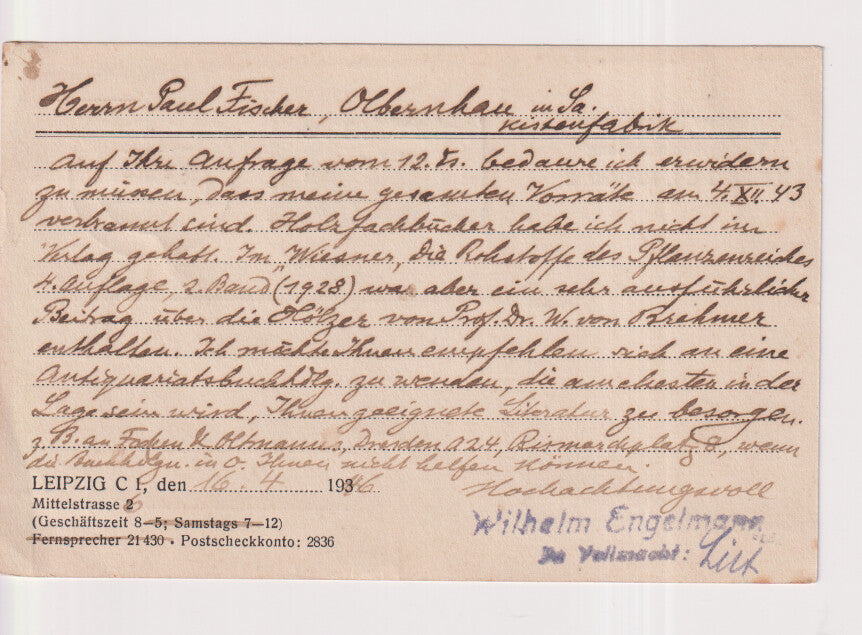 Herrn Paul Fischer, Olbernhau in Sa.
Kistenfabrik
Auf Ihre Anfrage vom 12. ds. bedaure ich erwidern
zu müssen, dass meine gesamten Vorräte am 4. XII 43
verbrannt sind. Holzfachbücher habe ich nicht im
Verlag gehabt. Im Wiesner, Die Rohstoffe des Pflanzenreiches
4. Auflage, 2. Band" (1928) war aber ein sehr ausführlicher
Beitrag über die Hölzer von Prof. Dr. W. von Brehmer
enthalten. Ich möchte Ihnen empfehlen sich an eine
Antiquariatsbuchhdlg. zu wenden, die am ehesten in der
Lage sein wird, Ihnen geeignete Literatur zu besorgen.
z. B. an Focken & Oltmanns, Dresden A 24, Bismarckplatz, wenn
die Buchhdlgn. in O. Ihnen nicht helfen können.
LEIPZIG C 1, den 16. 4. 1946
Hochachtungsvoll
Mittelstrasse 2
6
Wilhelm Engelmann
(Geschäftszeit 8—5; Samstags 7—12)
In Vollmacht:
Fernsprecher 21430 • Postscheckkonto: 2836